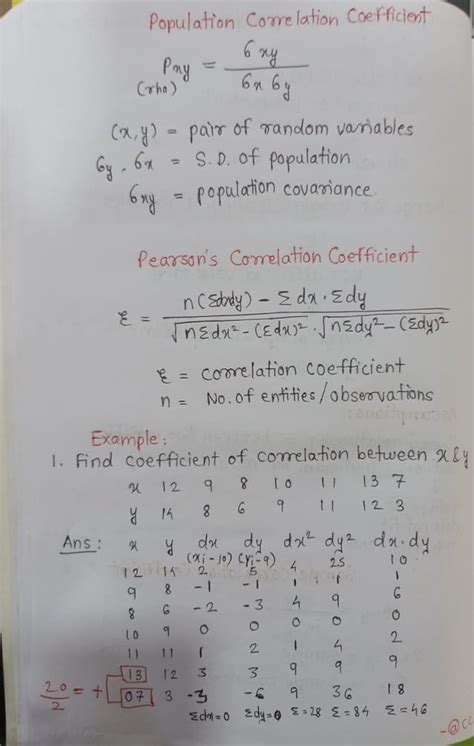 Population Correlation Coefficient
ρxy = σxy / σx σy
(rho)
(x,y) = pair of random variables
σy, σx = S.D. of population
σxy = population covariance.
Pearson's Correlation Coefficient
r = n(Σdxdy) - Σdx.Σdy / √nΣdx² - (Σdx)² . √nΣdy² - (Σdy)²
r = correlation coefficient
n = No. of entities/observations
Example:
1. Find coefficient of correlation between x & y
x 12 9 8 10 11 13 7
y 14 8 6 9 11 12 3
Ans: x y dx dy dx² dy² dx.dy
(xi-10) (yi-9)
12 14 2 5 4 25 10
9 8 -1 -1 1 1 1
8 6 -2 -3 4 9 6
10 9 0 0 0 0 0
11 11 1 2 1 4 2
13 12 3 3 9 9 9
20/2 = + 07 3 -3 -6 9 36 18
Σdx=0 Σdy=0 Σ=28 Σ=84 Σ=46